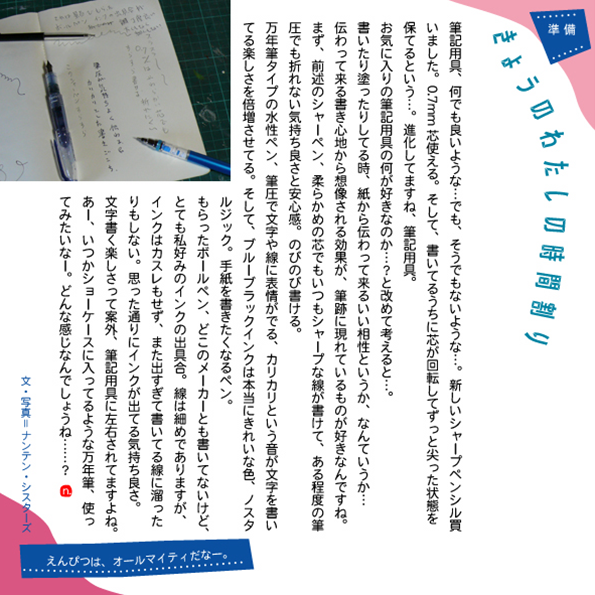 準備
きょうのわたしの時間割り
筆記用具、何でも良いような…でも、そうでもないような…。新しいシャープペンシル買
いました。0.7mm芯使える。そして、書いてるうちに芯が回転してずっと尖った状態を
保てるという…。進化してますね、筆記用具。
お気に入りの筆記用具の何が好きなのか…？と改めて考えると…。
書いたり塗ったりしてる時、紙から伝わって来るいい相性というか、なんていうか…
伝わって来る書き心地から想像される効果が、筆跡に現れているものが好きなんですね。
まず、前述のシャーペン、柔らかめの芯でもいつもシャープな線が書けて、ある程度の筆
圧でも折れない気持ち良さと安心感。のびのび書ける。
万年筆タイプの水性ペン、筆圧で文字や線に表情がでる、カリカリという音が文字を書い
てる楽しさを倍増させてる。そして、ブルーブラックインクは本当にきれいな色、ノスタ
ルジック。手紙を書きたくなるペン。
もらったボールペン、どこのメーカーとも書いてないけど、
とても私好みのインクの出具合。線は細めでありますが、
インクはカスレもせず、また出すぎて書いてる線に溜った
りもしない。思った通りにインクが出てる気持ち良さ。
文字書く楽しさって案外、筆記用具に左右されてますよね。
あー、いつかショーケースに入ってるような万年筆、使っ
てみたいなー。どんな感じなんでしょうね……？
n.
文・写真＝ナンテン・シスターズ
えんぴつは、オールマイティだなー。